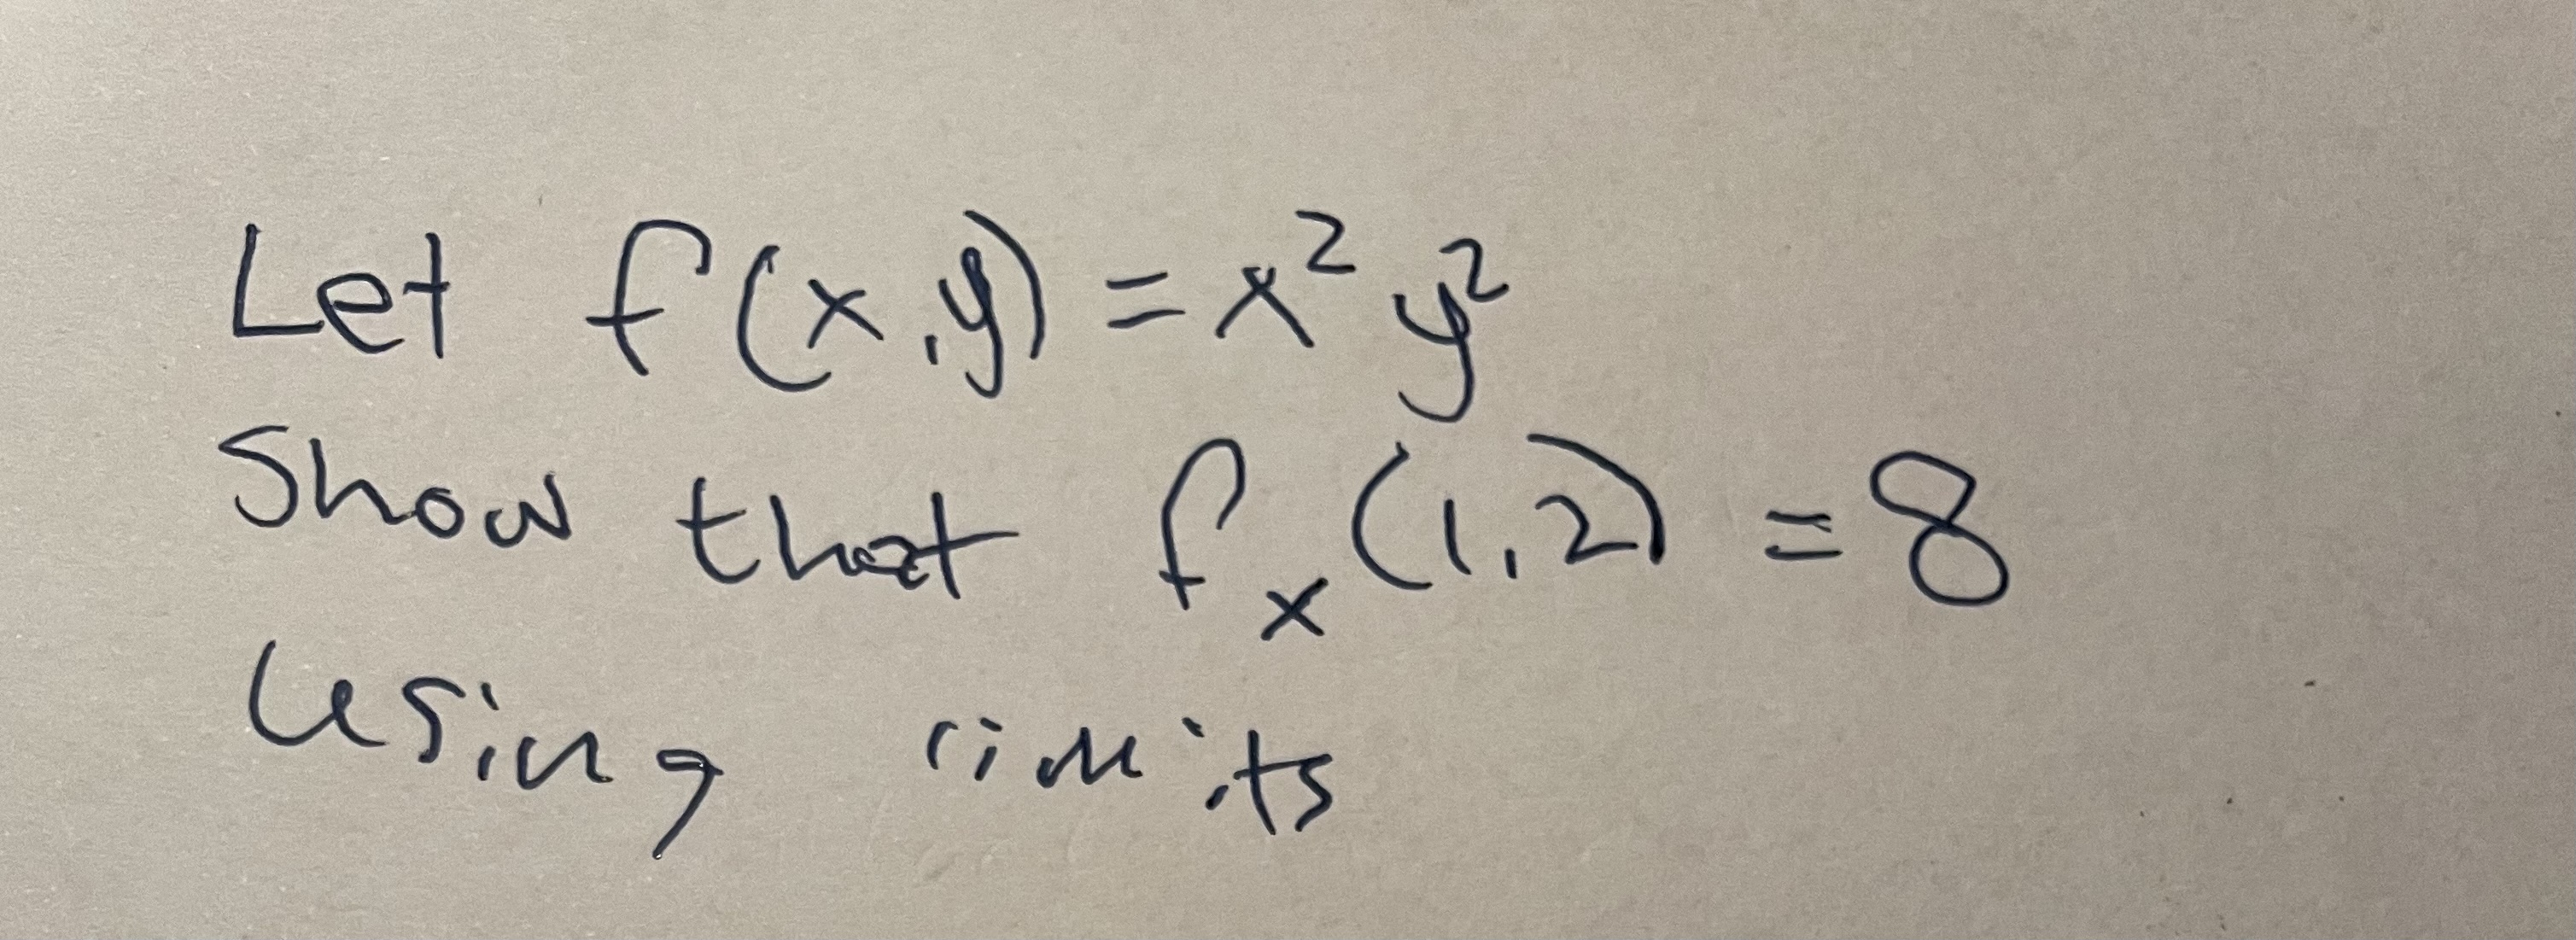 Let f(x,y) = x² y²
Show that fₓ(1,2) = 8
Using limits